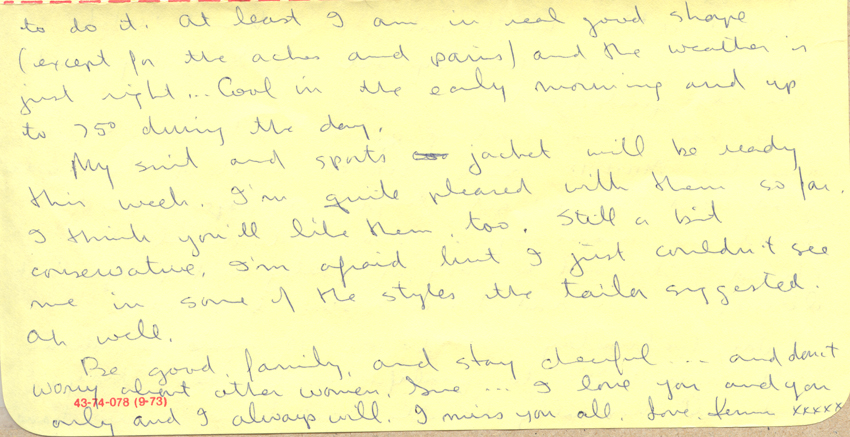 to do it. At least I am in real good shape
(except for the aches and pains) and the weather is
just right... Cool in the early morning and up
to 75° during the day.
My suit and sports jacket will be ready
this week. I'm quite pleased with them so far.
I think you'll like them, too. Still a bit
conservative, I'm afraid but I just couldn't see
me in some of the styles the tailor suggested.
Ah well.
Be good, family, and stay cheerful ... and don't
worry about other women, Sue ... I love you and you
43-74-078 (9-73)
only and I always will. I miss you all. Love, xxxxx